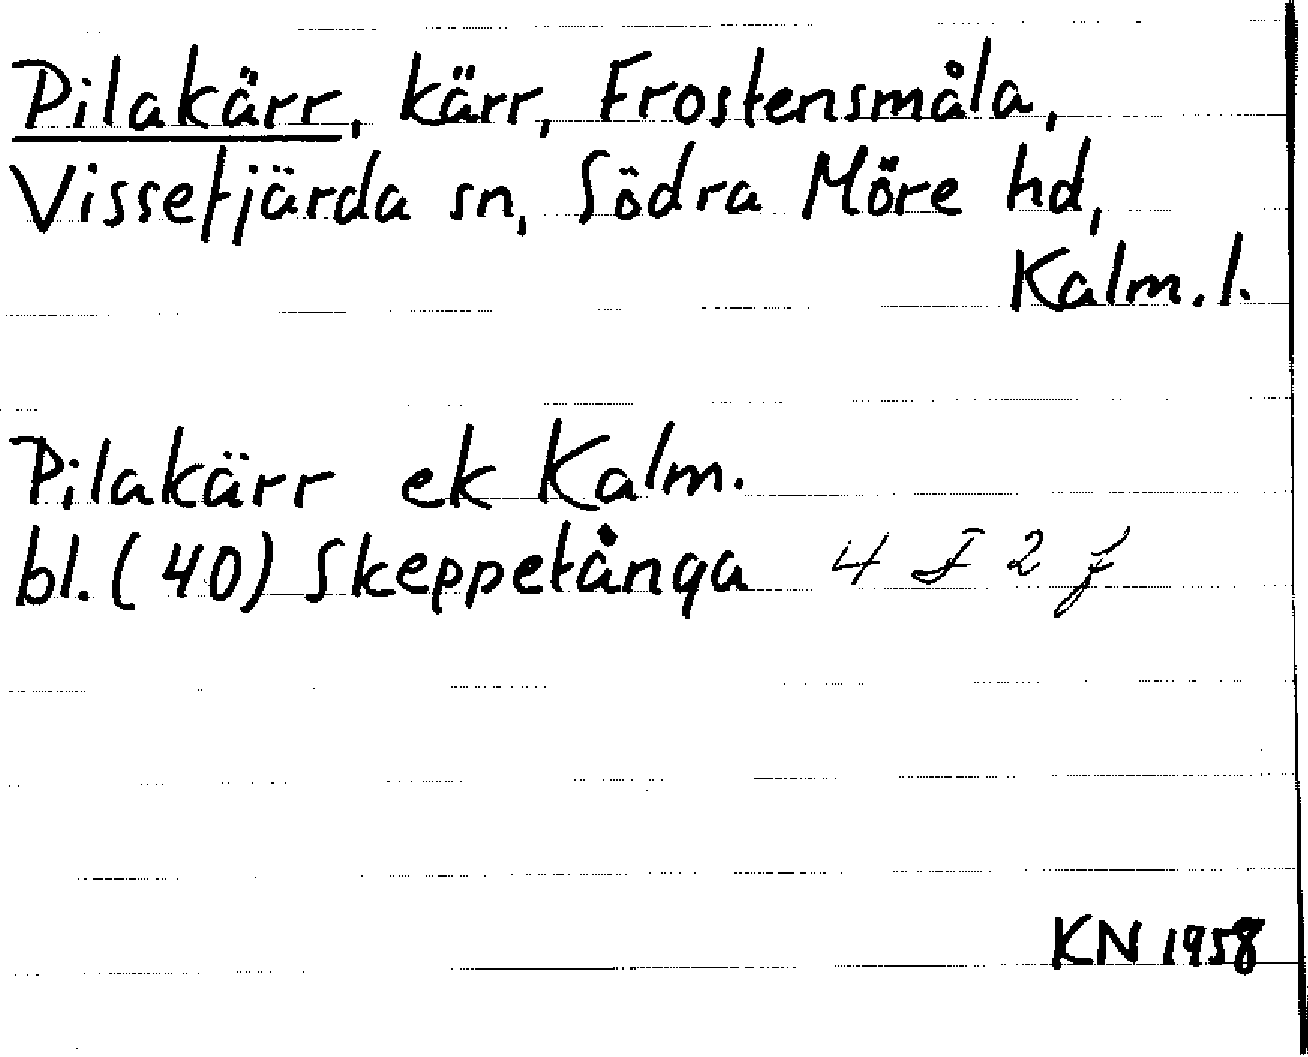 Pilakärr, kärr, Frostensmåla,
Vissefjärda sn, Södra Möre hd,
Kalm. l.
Pilakärr ek Kalm.
bl. (40) Skeppetånga 4 F 2 f
KN 1958